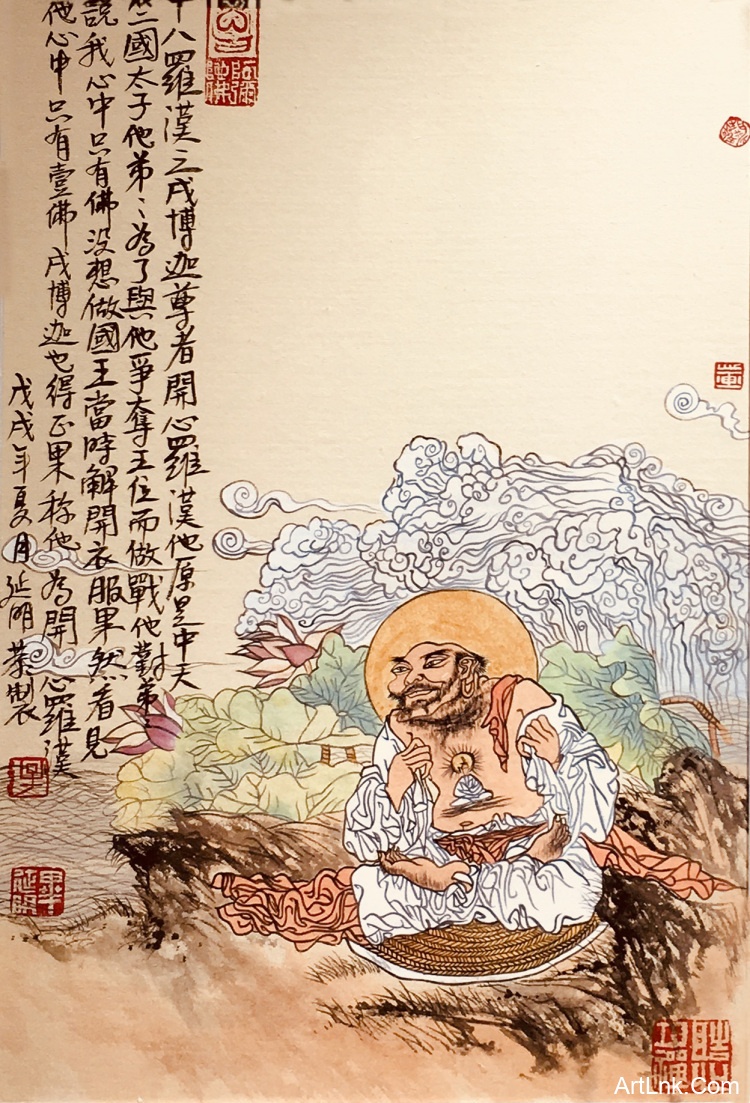 十八羅漢之戌博迦尊者開心羅漢他原是中天
竺國太子他弟〻為了與他爭奪王位而做戰他對弟〻
說我心中只有佛沒想做國王當時解開衣服果然看見
他心中只有壹佛戌博迦也得正果稱他為開心羅漢
戊戌年夏月延明恭製
阿彌陀佛
ArtLnk.Com